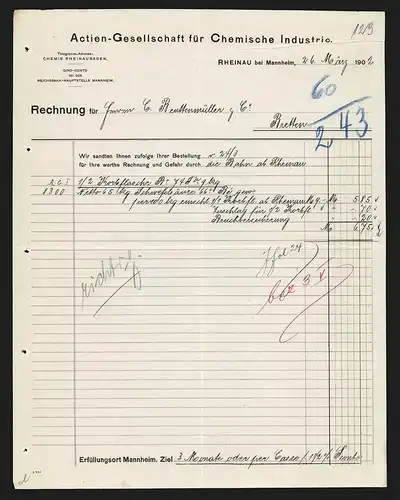 1213
Actien-Gesellschaft für Chemische Industrie.
Telegramm-Adresse:
CHEMIE RHEINAUBADEN.
GIRO-CONTO
BEI DER
REICHSBANK-HAUPTSTELLE MANNHEIM.
RHEINAU bei Mannheim, 26 März 1902.
60
Rechnung für Herren C. Beuttenmüller & Cº
Bretten
2,43
Wir sandten Ihnen zufolge Ihrer Bestellung v. 24/3
für Ihre werthe Rechnung und Gefahr durch die Bahn ab Rheinau
1/2 Korbflasche Bº 74 kg
1300 Netto 65 kg Schwefelsäure 66° Bé
per 100 kg ab Rheinau M 9.- M 5.85
Zuschlag für 1/2 Korbfl. -.70
-.20
M 6.75
richtig
bez 3. V
Erfüllungsort Mannheim. Ziel 3 Monate oder per Cassa 1 1/2 % Sconto